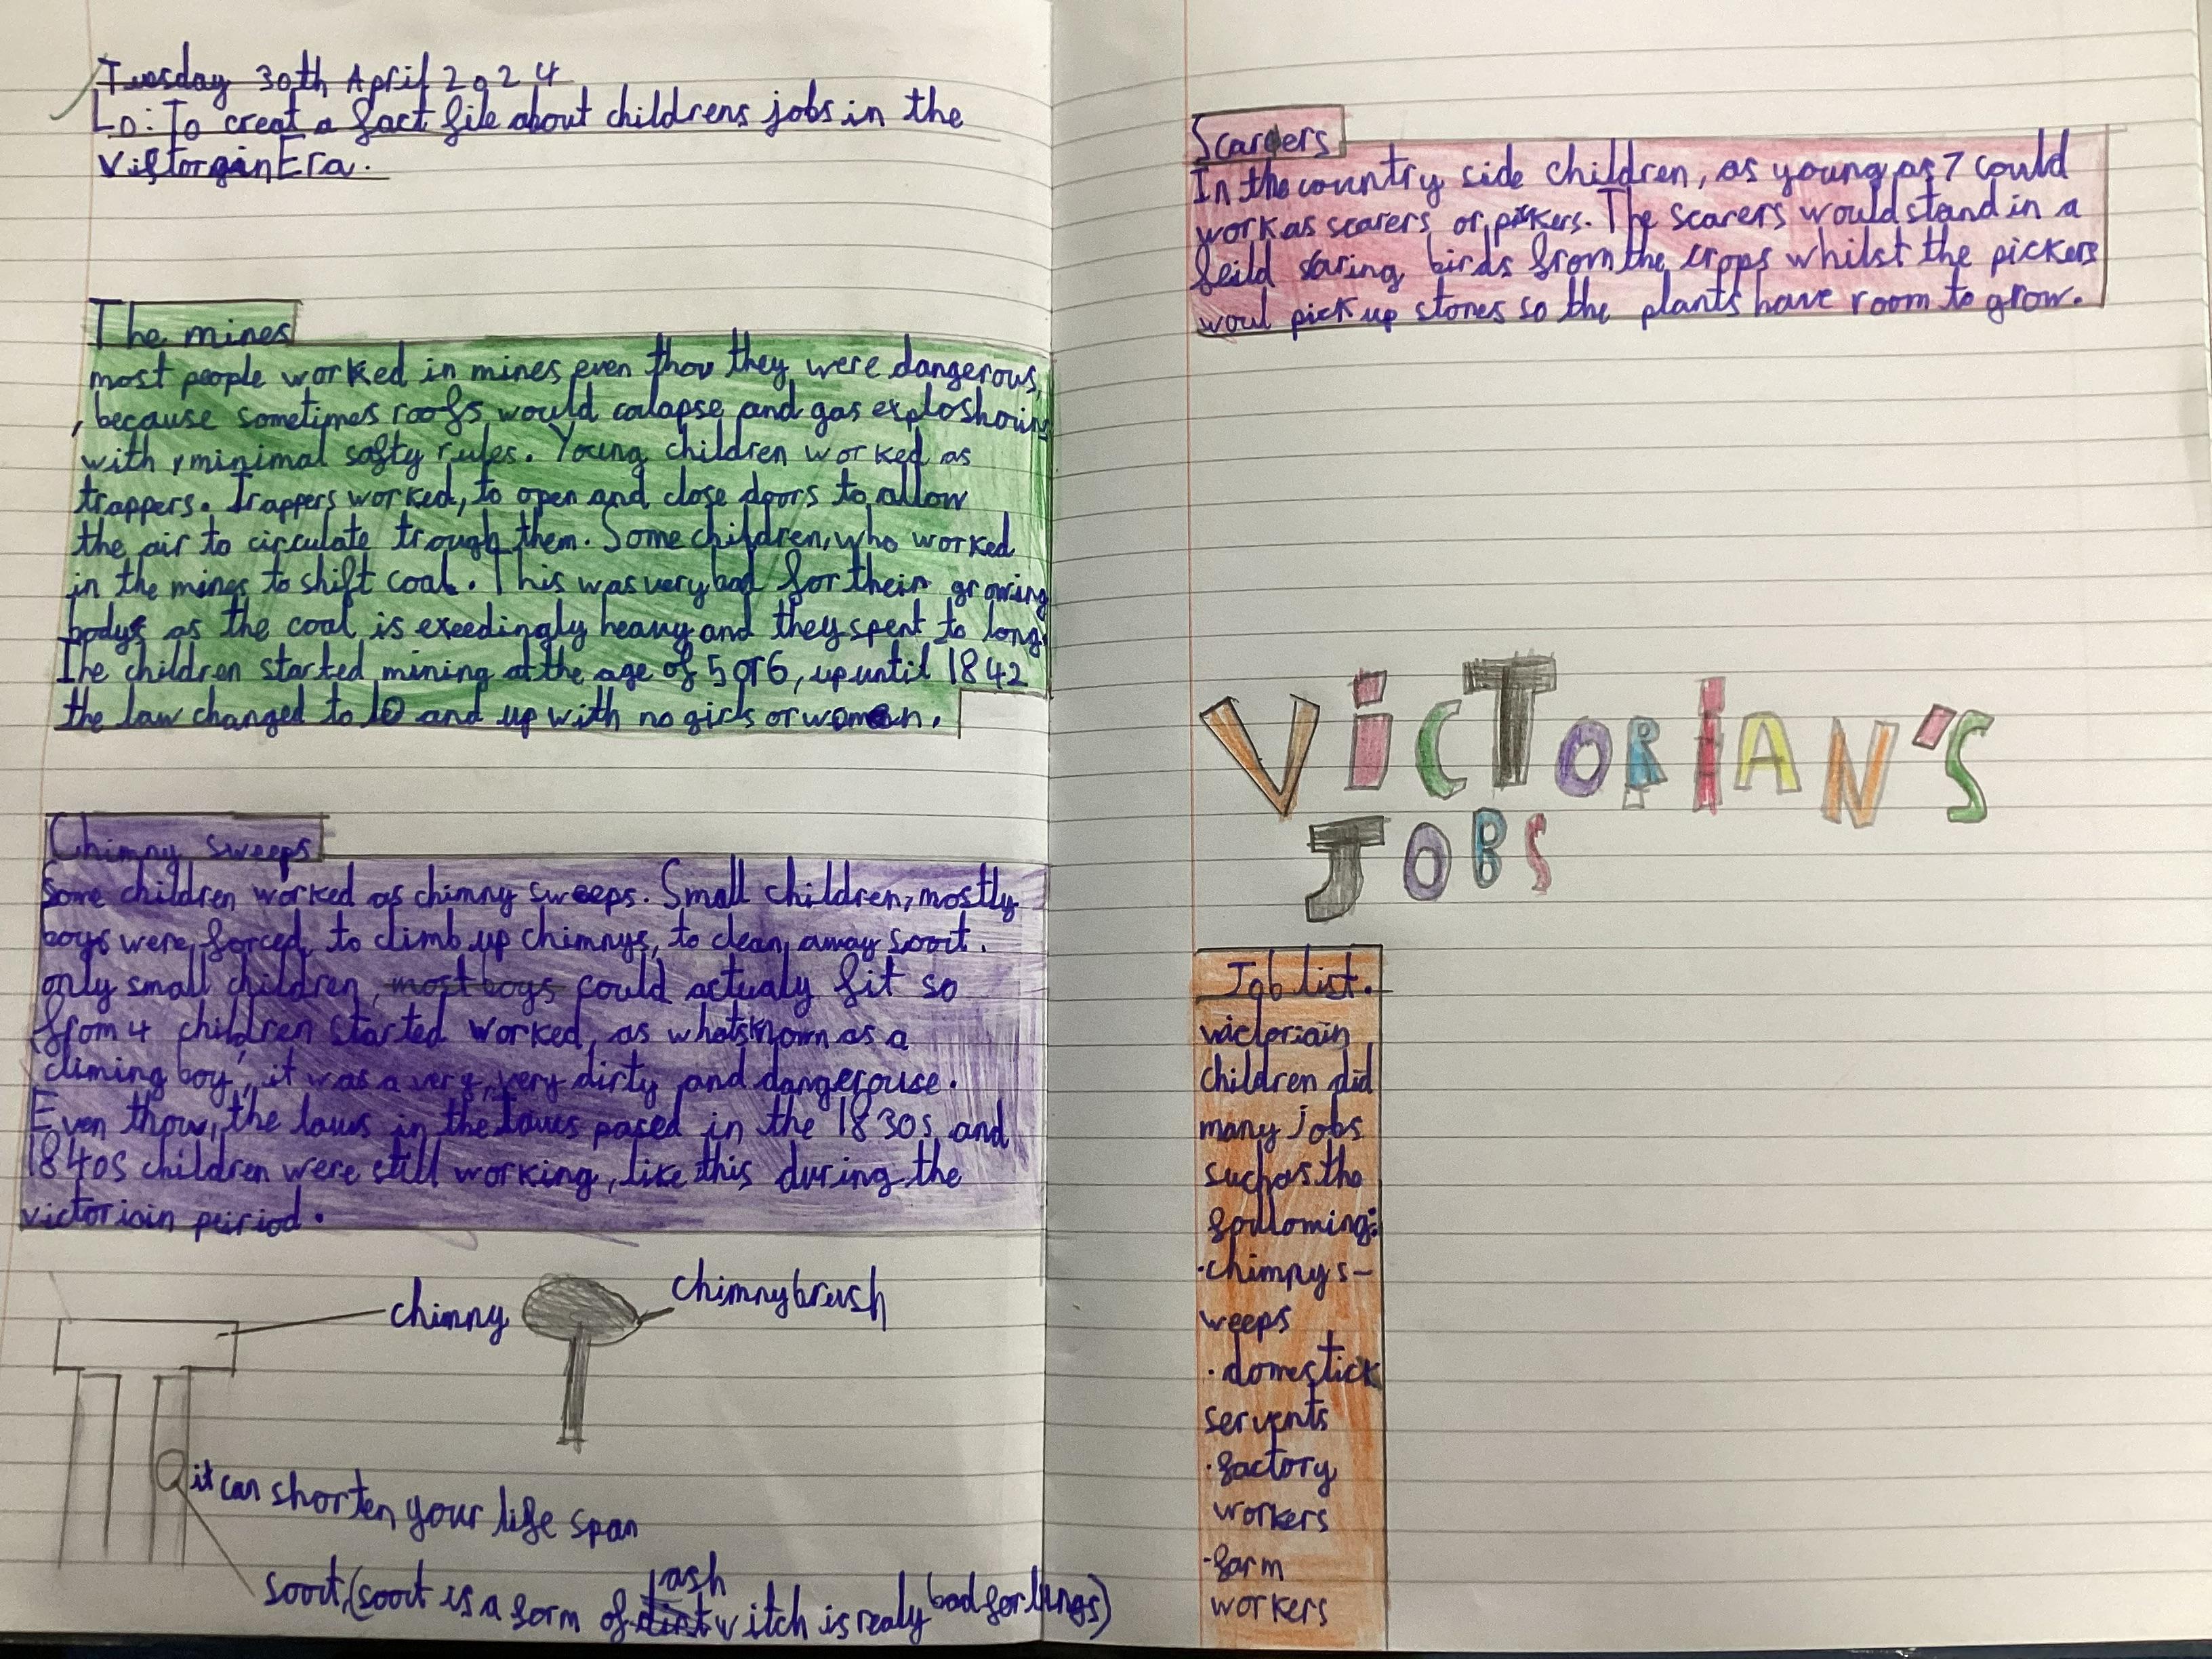 Tuesday 30th April 2024
LO: To creat a fact file about childrens jobs in the
Era.
The mines
most people worked in mines even thou they were dangerous,
, because sometimes roofs would calapse and gas exploshoins
with minimal safty rules. Young children worked as
trappers. Trappers worked, to open and close doors to allow
the air to circulate trough them. Some children, who worked
in the mines to shift coal. This was very bad for their growing
bodys as the coal is exeedingly heavy and they spent to long.
The children started mining at the age of 5 or 6, up until 1842
the law changed to 10 and up with no girls or women.
Chimny sweeps
Some children worked as chimny sweeps. Small children, mostly
boys were forced to climb up chimnys, to clean away soot.
only small children, most boys could actualy fit so
from 4 children started worked, as whats known as a
'climing boy', it was a very, very dirty and dangerouse.
Even thou, the laws in the laws pased in the 1830s and
1840s children were still working, like this during the
victoriain peiriod.
chimny
chimny brush
it can shorten your life span
soout, (soout is a form of dirt ash witch is realy bad for lungs)
Scarers
In the country side children, as young as 7 could
work as scarers or pickers. The scarers would stand in a
feild scaring birds from the crops whilst the pickers
woul pick up stones so the plants have room to grow.
VICTORIAN'S
JOBS
Job list.
victoriain
children did
many jobs
such as the
:
·chimny s-
weeps
·domestick
servents
·factory
workers
·farm
workers